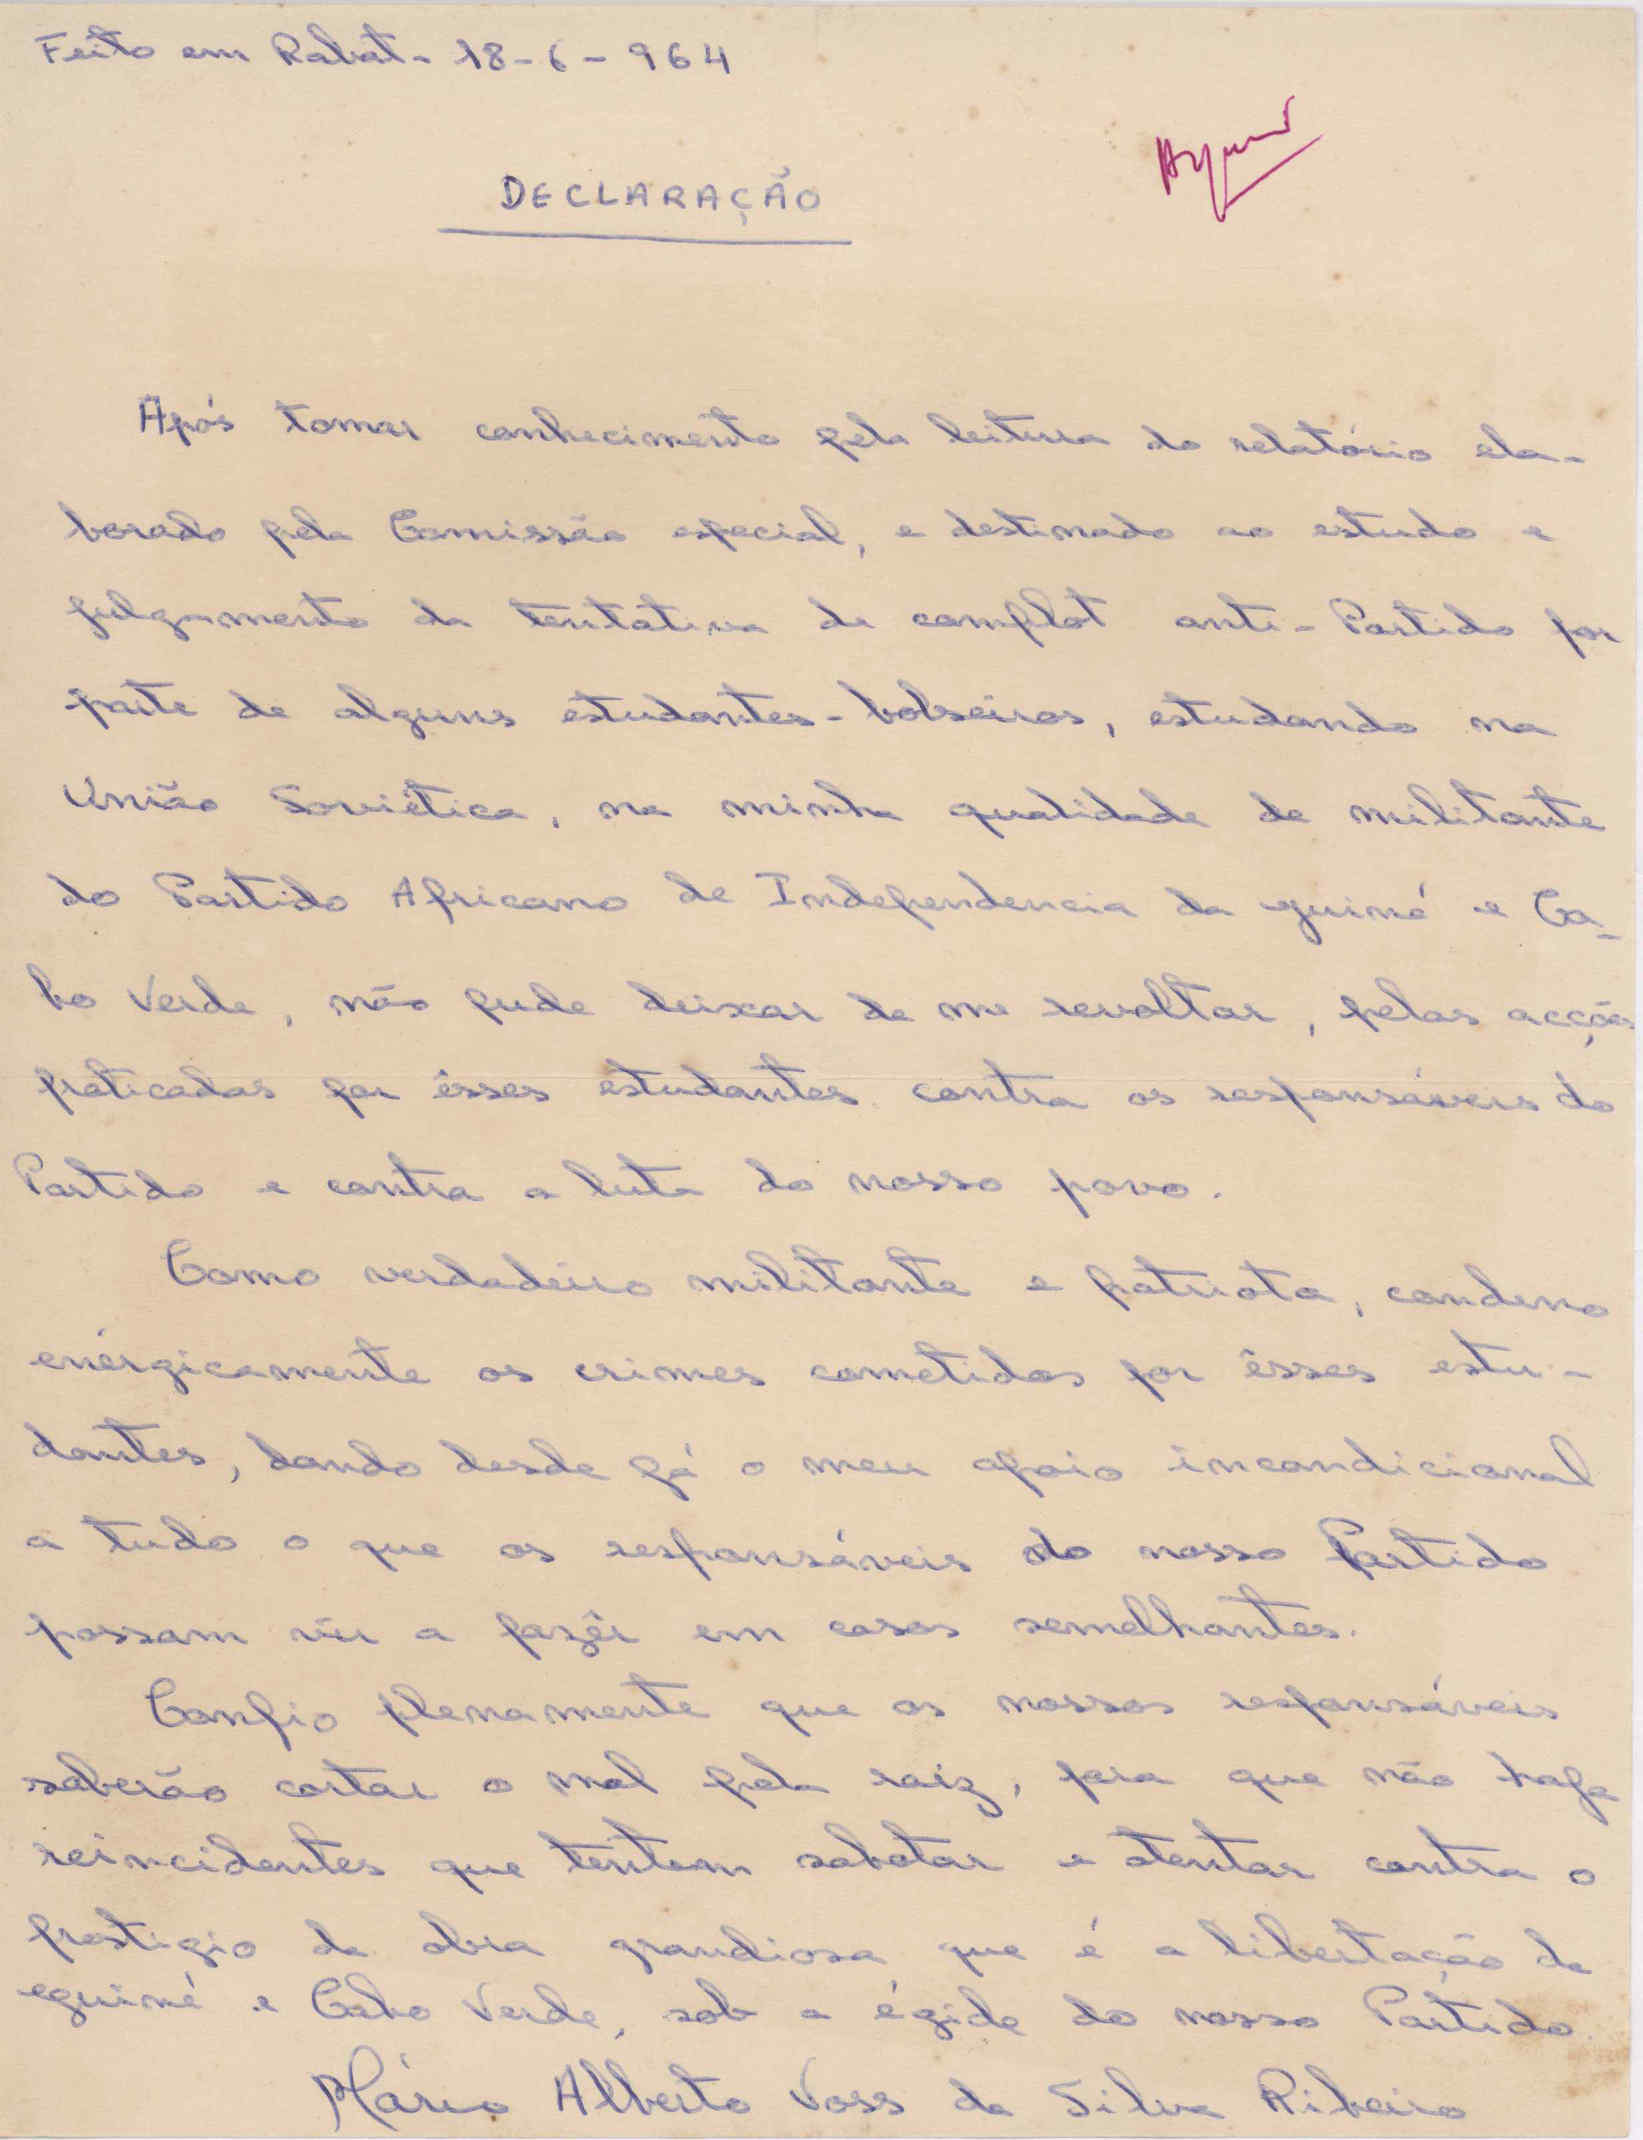 Feito em Rabat - 18-6-964
DECLARAÇÃO
Após tomar conhecimento pela leitura do relatório ela-
borado pela Comissão especial, e destinado ao estudo e
julgamento da tentativa de complot anti-Partido por
parte de alguns estudantes-bolseiros, estudando na
União Soviética, na minha qualidade de militante
do Partido Africano de Independencia da guiné e Ca-
bo Verde, não pude deixar de me revoltar, pelas acções
praticadas por êsses estudantes contra os responsáveis do
Partido e contra a luta do nosso povo.
Como verdadeiro militante e patriota, condeno
enérgicamente os crimes cometidos por êsses estu-
dantes, dando desde já o meu apoio incondicional
a tudo o que os responsáveis do nosso Partido
possam vir a fazêr em casos semelhantes.
Confio plenamente que os nossos responsáveis
saberão cortar o mal pela raiz, para que não haja
reincidentes que tentem sabotar e atentar contra o
prestigio da obra grandiosa que é a libertação da
guiné e Cabo Verde, sob a égide do nosso Partido.
Mário Alberto Voss da Silva Ribeiro